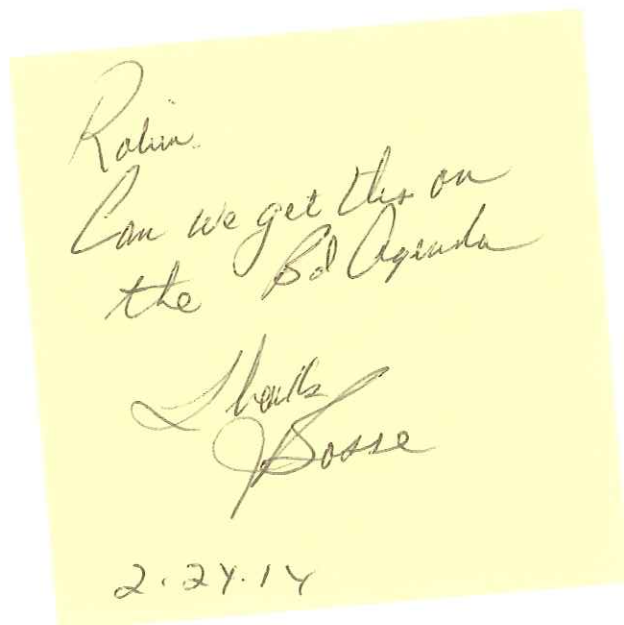 Robin
Can we get this on
the Bd Agenda
Thanks
JBosse
2.24.14